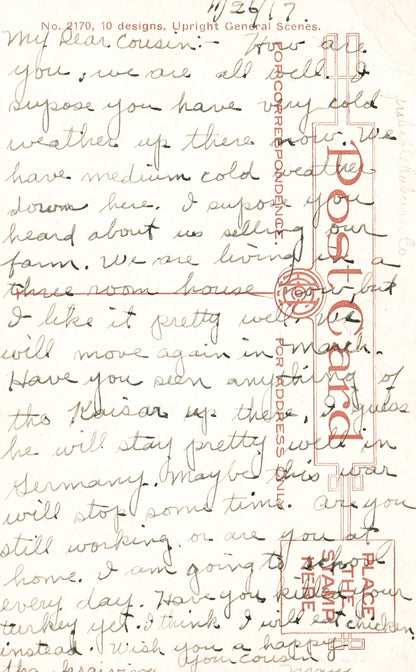 11/26/17.
No. 2170, 10 designs, Upright General Scenes.
My Dear Cousin:- How are
you, we are all well. I
supose you have very cold
weather up there now. We
have medium cold weather
down here. I supose you
heard about us selling our
farm. We are living in a
three room house now, but
I like it pretty well. We
will move again in March.
Have you seen anything of
the Kaisar up there, I guess
he will stay pretty well in
Germany. Maybe this war
will stop some time. Are you
still working or are you at
home. I am going to school
every day. Have you killed your
turkey yet. I think I will eat chicken
instead. Wish you a happy
thanksgiving
Your cousin
FOR CORRESPONDENCE.
FOR ADDRESS ONLY
Post Card
PLACE
THE
STAMP
HERE